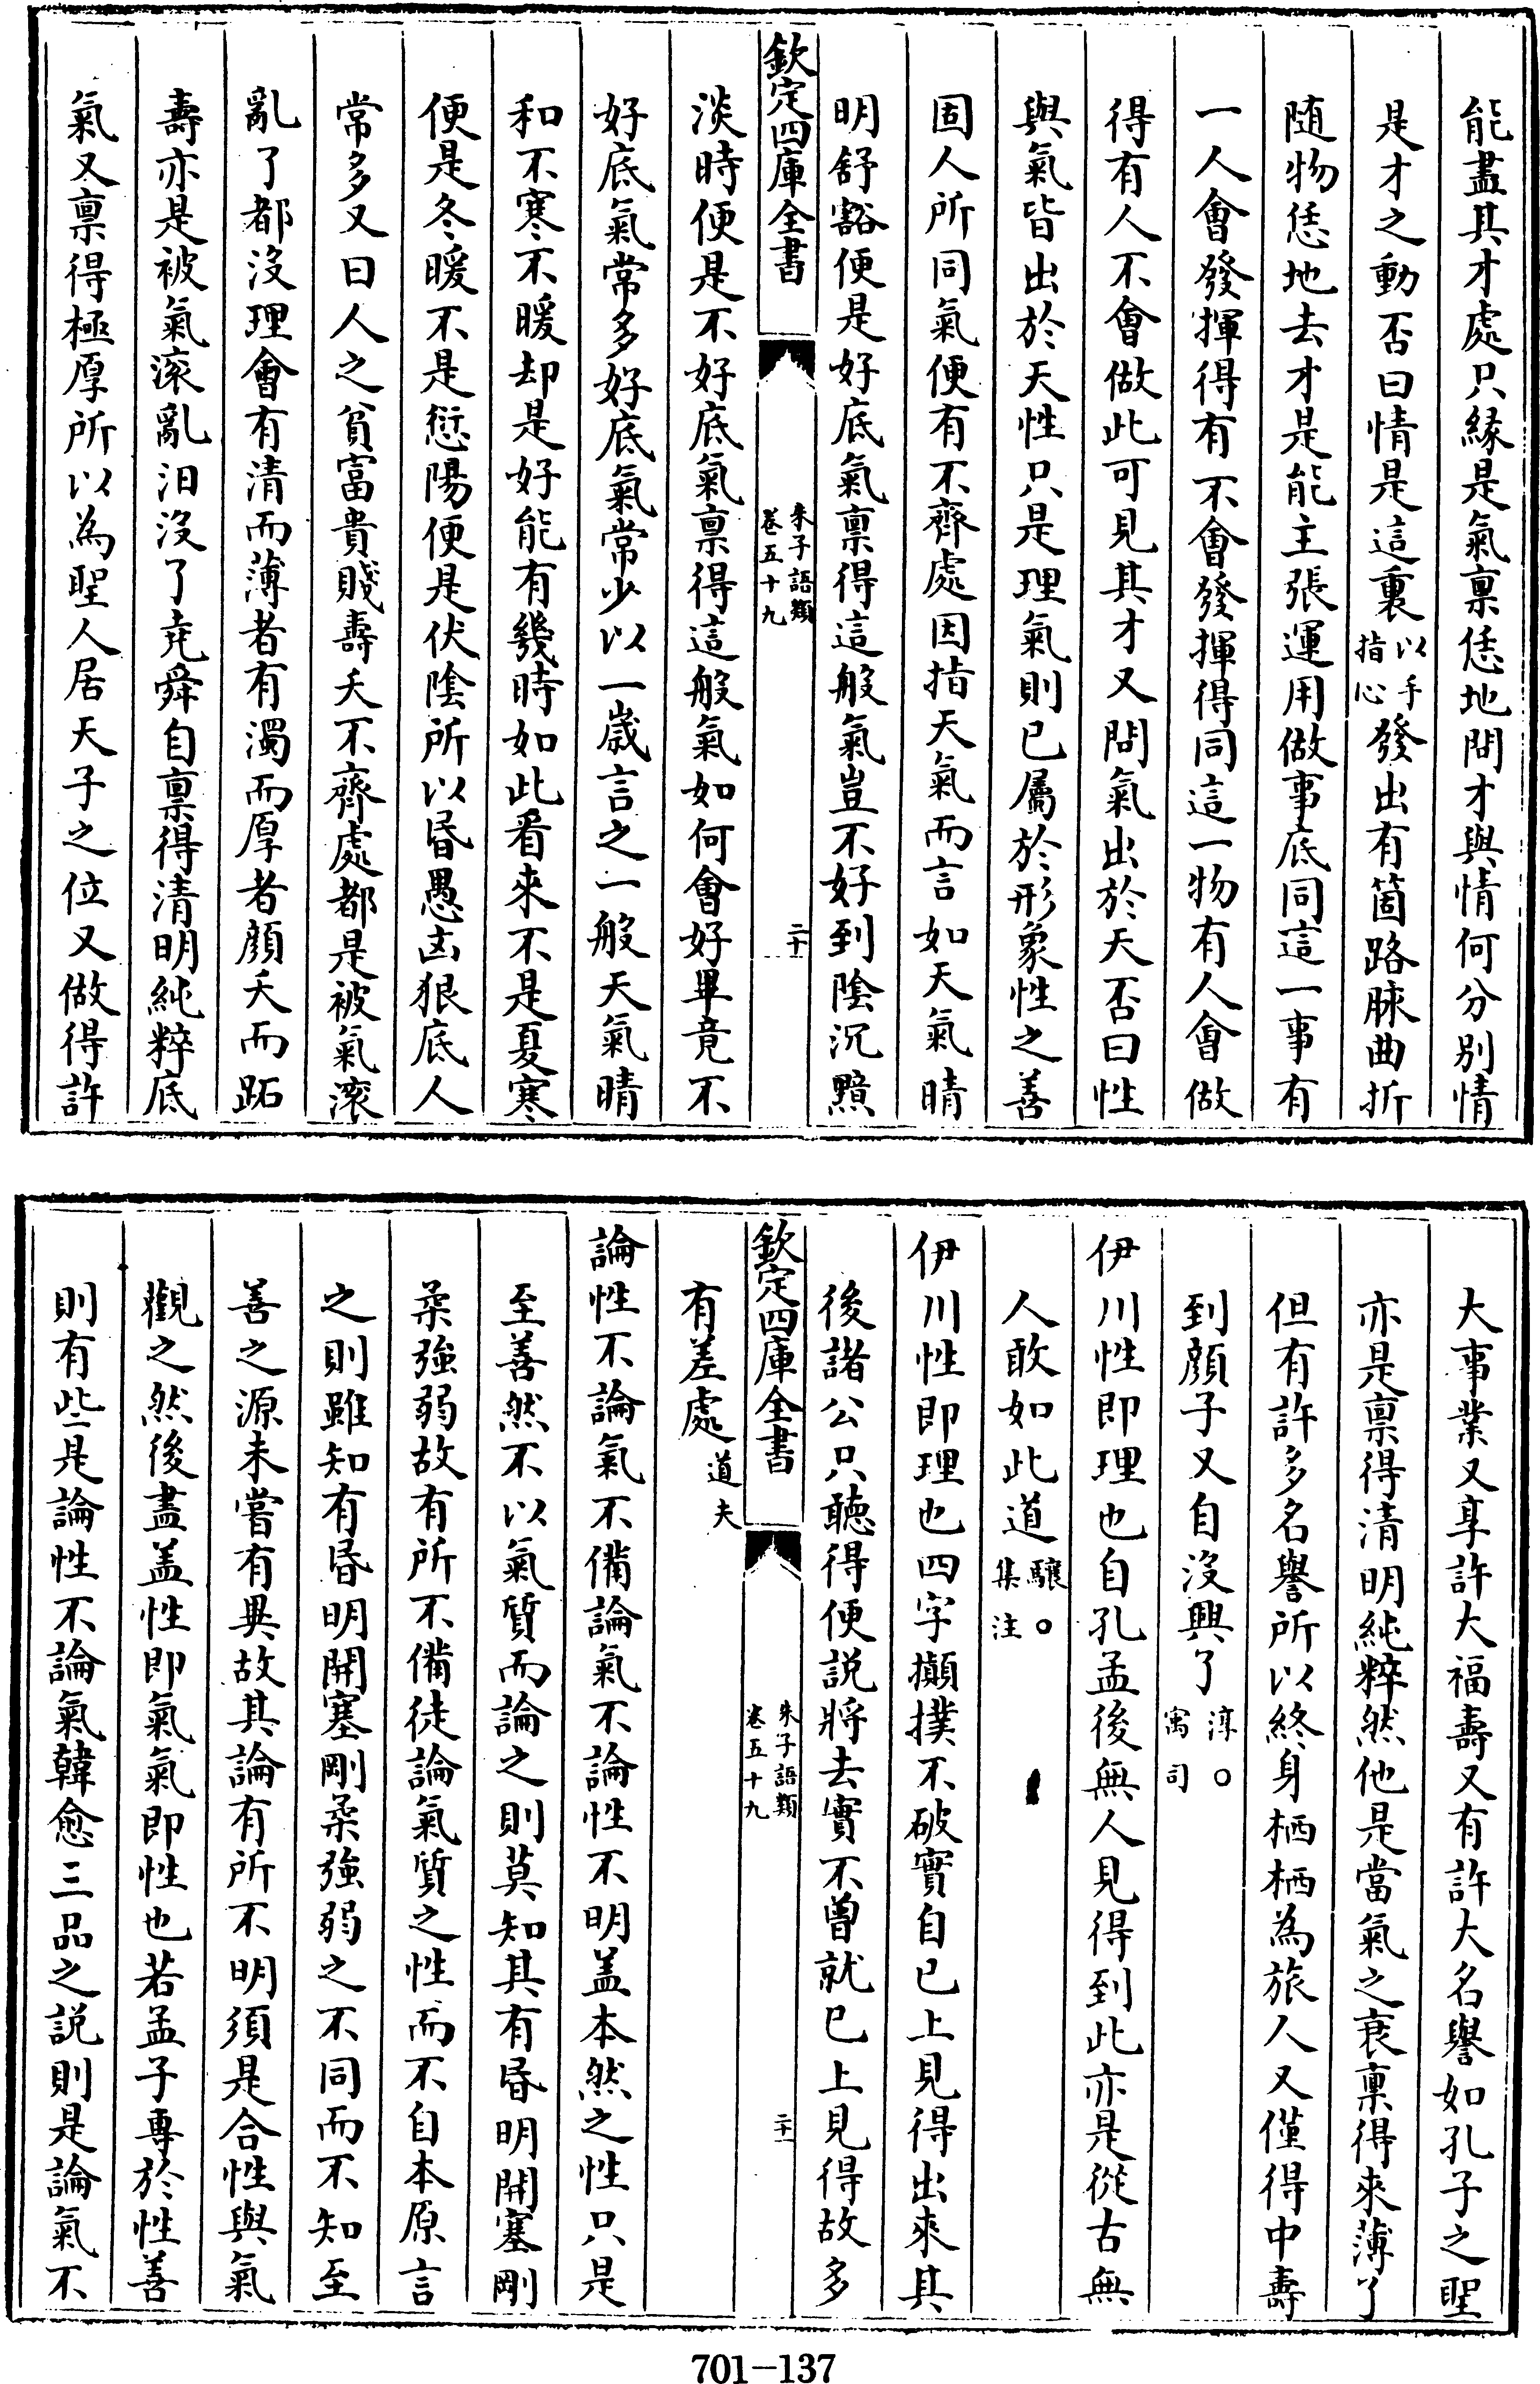 能盡其才處只緣是氣禀恁地問才與情何分别情
是才之動否曰情是這裏以手指心發出有箇路脉曲折
随物恁地去才是能主張運用做事底同這一事有
一人會發揮得有不會發揮得同這一物有人會做
得有人不會做此可見其才又問氣出於天否曰性
與氣皆出於天性只是理氣則已屬於形象性之善
固人所同氣便有不齊處因指天氣而言如天氣晴
明舒豁便是好底氣禀得這般氣豈不好到陰沉黯
欽定四庫全書
朱子語類
卷五十九
二十
淡時便是不好底氣禀得這般氣如何會好畢竟不
好底氣常多好底氣常少以一歲言之一般天氣晴
和不寒不暖却是好能有幾時如此看來不是夏寒
便是冬暖不是愆陽便是伏陰所以昏愚凶狠底人
常多又曰人之貧富貴賤壽夭不齊處都是被氣滚
亂了都沒理會有清而薄者有濁而厚者顔夭而跖
壽亦是被氣滚亂汨沒了尭舜自禀得清明純粹底
氣又禀得極厚所以為聖人居天子之位又做得許
大事業又享許大福壽又有許大名譽如孔子之聖
亦是禀得清明純粹然他是當氣之衰禀得來薄了
但有許多名譽所以終身栖栖為旅人又僅得中壽
到顔子又自沒興了淳○寓司
伊川性即理也自孔孟後無人見得到此亦是從古無
人敢如此道驤○集注
伊川性即理也四字攧撲不破實自已上見得出來其
後諸公只聽得便説將去實不曾就已上見得故多
欽定四庫全書
朱子語類
卷五十九
二十一
有差處道夫
論性不論氣不備論氣不論性不明盖本然之性只是
至善然不以氣質而論之則莫知其有昏明開塞剛
柔強弱故有所不備徒論氣質之性而不自本原言
之則雖知有昏明開塞剛柔強弱之不同而不知至
善之源未嘗有異故其論有所不明須是合性與氣
觀之然後盡盖性即氣氣即性也若孟子專於性善
則有些是論性不論氣韓愈三品之説則是論氣不
701-137